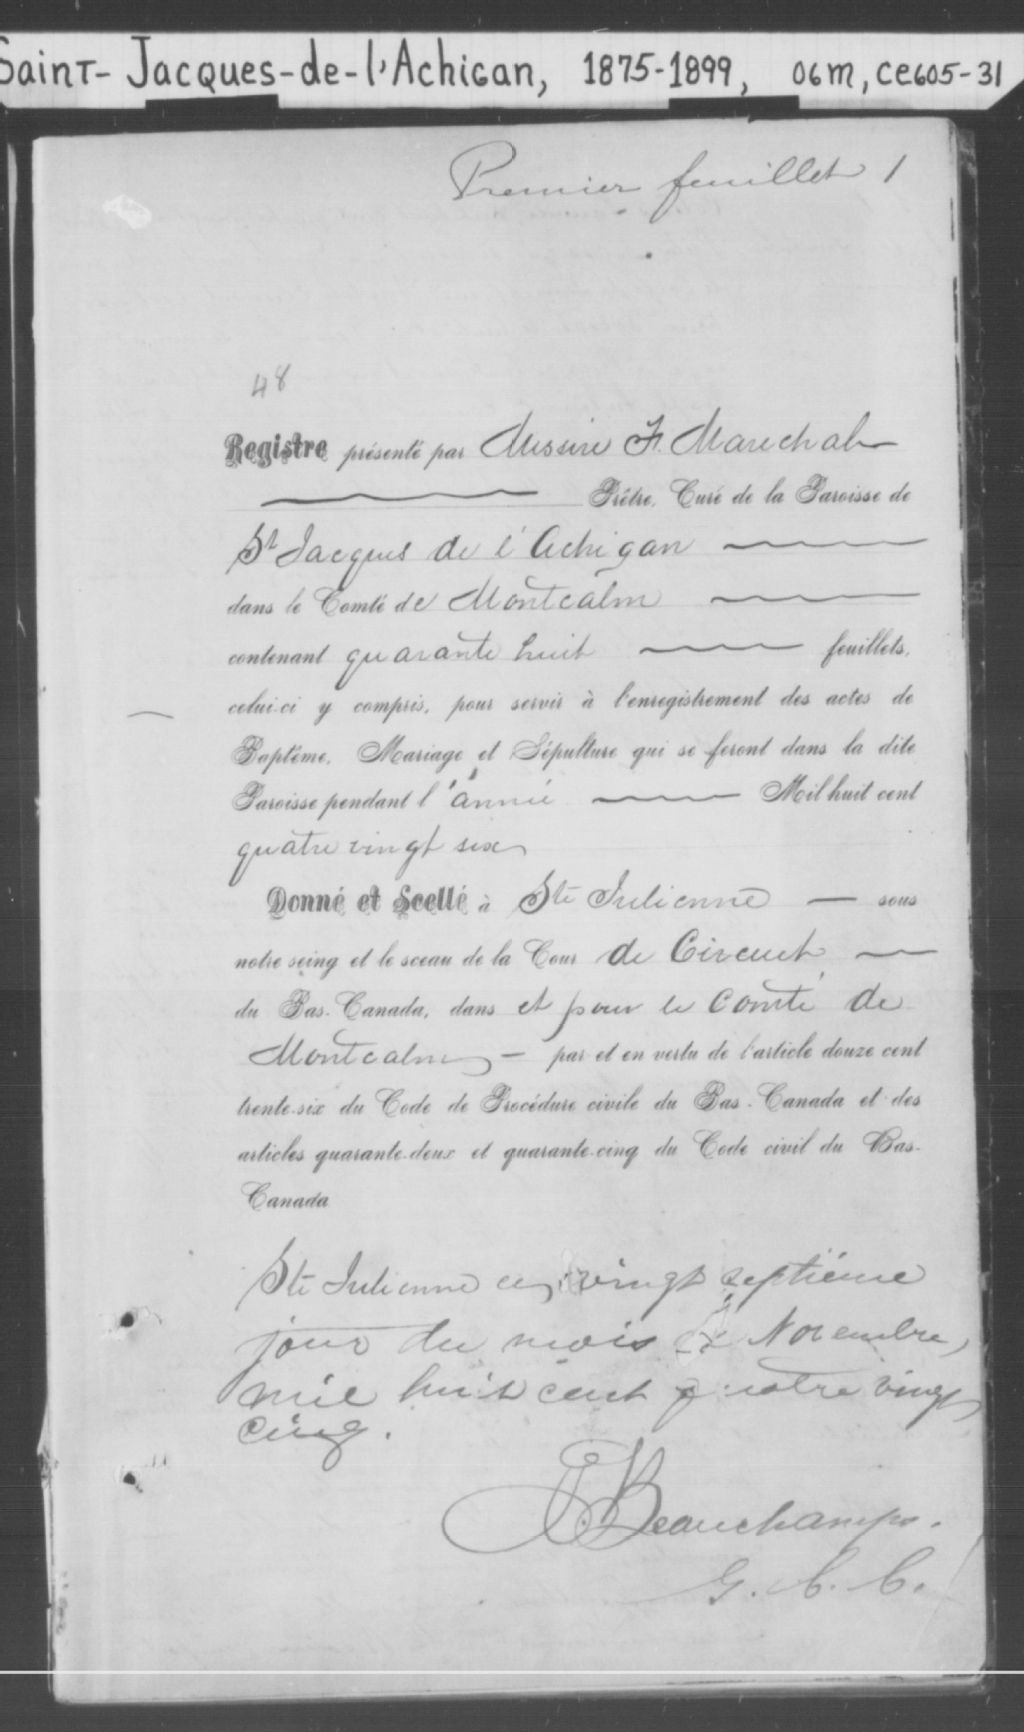 Saint-Jacques-de-l'Achigan, 1875-1899, 06M, CE605-31
Premier feuillet 1
48
Registre présenté par Messire F. Marechal
Prêtre, Curé de la Paroisse de
St Jacques de l'Achigan
dans le Comté de Montcalm
contenant quarante huit feuillets,
celui-ci y compris, pour servir à l'enregistrement des actes de
Baptême, Mariage et Sépulture qui se feront dans la dite
Paroisse pendant l'année Mil huit cent
quatre vingt six
Donné et Scellé à Ste Julienne sous
notre seing et le sceau de la Cour de Circuit
du Bas-Canada, dans et pour le Comté de
Montcalm - par et en vertu de l'article douze cent
trente-six du Code de Procédure civile du Bas-Canada et des
articles quarante-deux et quarante-cinq du Code civil du Bas-
Canada
Ste Julienne ce vingt septième
jour du mois de Novembre,
mil huit cent quatre vingt
cinq.
Beauchamp.
G. C. C.